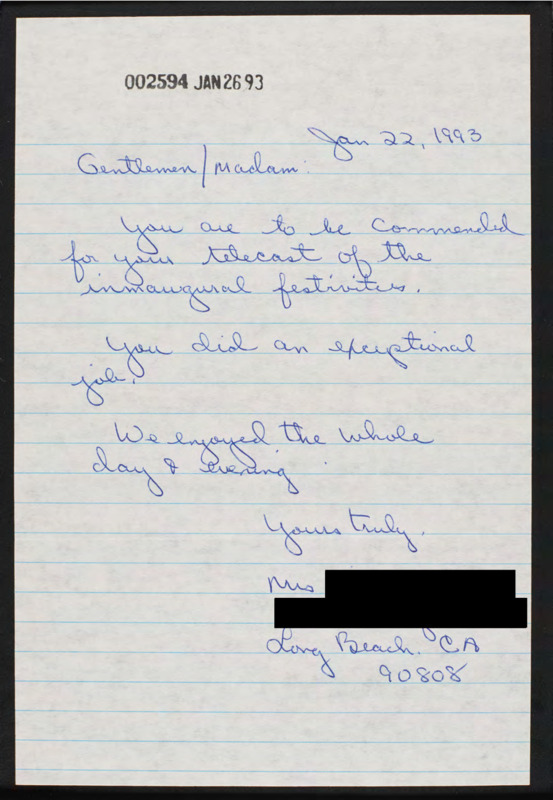 002594 JAN 26 93
Jan 22, 1993
Gentlemen/Madam:
You are to be commended
for your telecast of the
inmaugural festivities.
You did an exceptional
job.
We enjoyed the whole
day & evening.
Yours truly,
Mrs
Long Beach. CA
90808